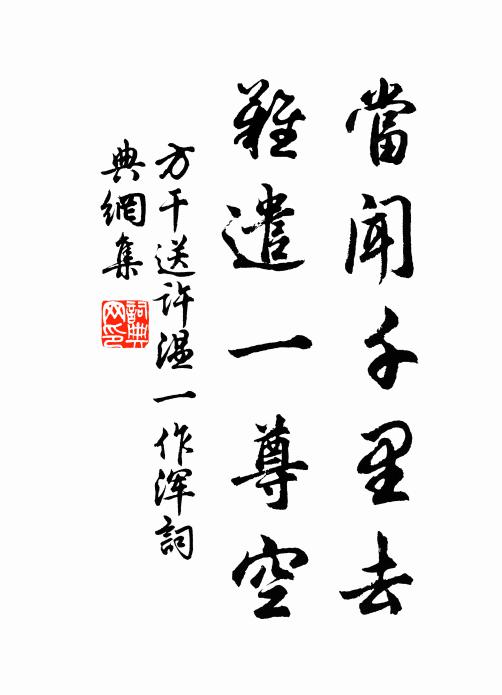 當聞千里去
難遣一尊空
方干送許温一作渾詞
典網集
詞典網印